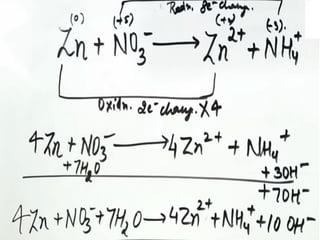 Redn. 8e⁻ change.
(0) (+5) (+2) (-3)
Zn + NO₃⁻ → Zn²⁺ + NH₄⁺
Oxidn. 2e⁻ change. X4
4Zn + NO₃⁻ → 4Zn²⁺ + NH₄⁺
+7H₂O + 3OH⁻
+ 7OH⁻
4Zn + NO₃⁻ + 7H₂O → 4Zn²⁺ + NH₄⁺ + 10 OH⁻